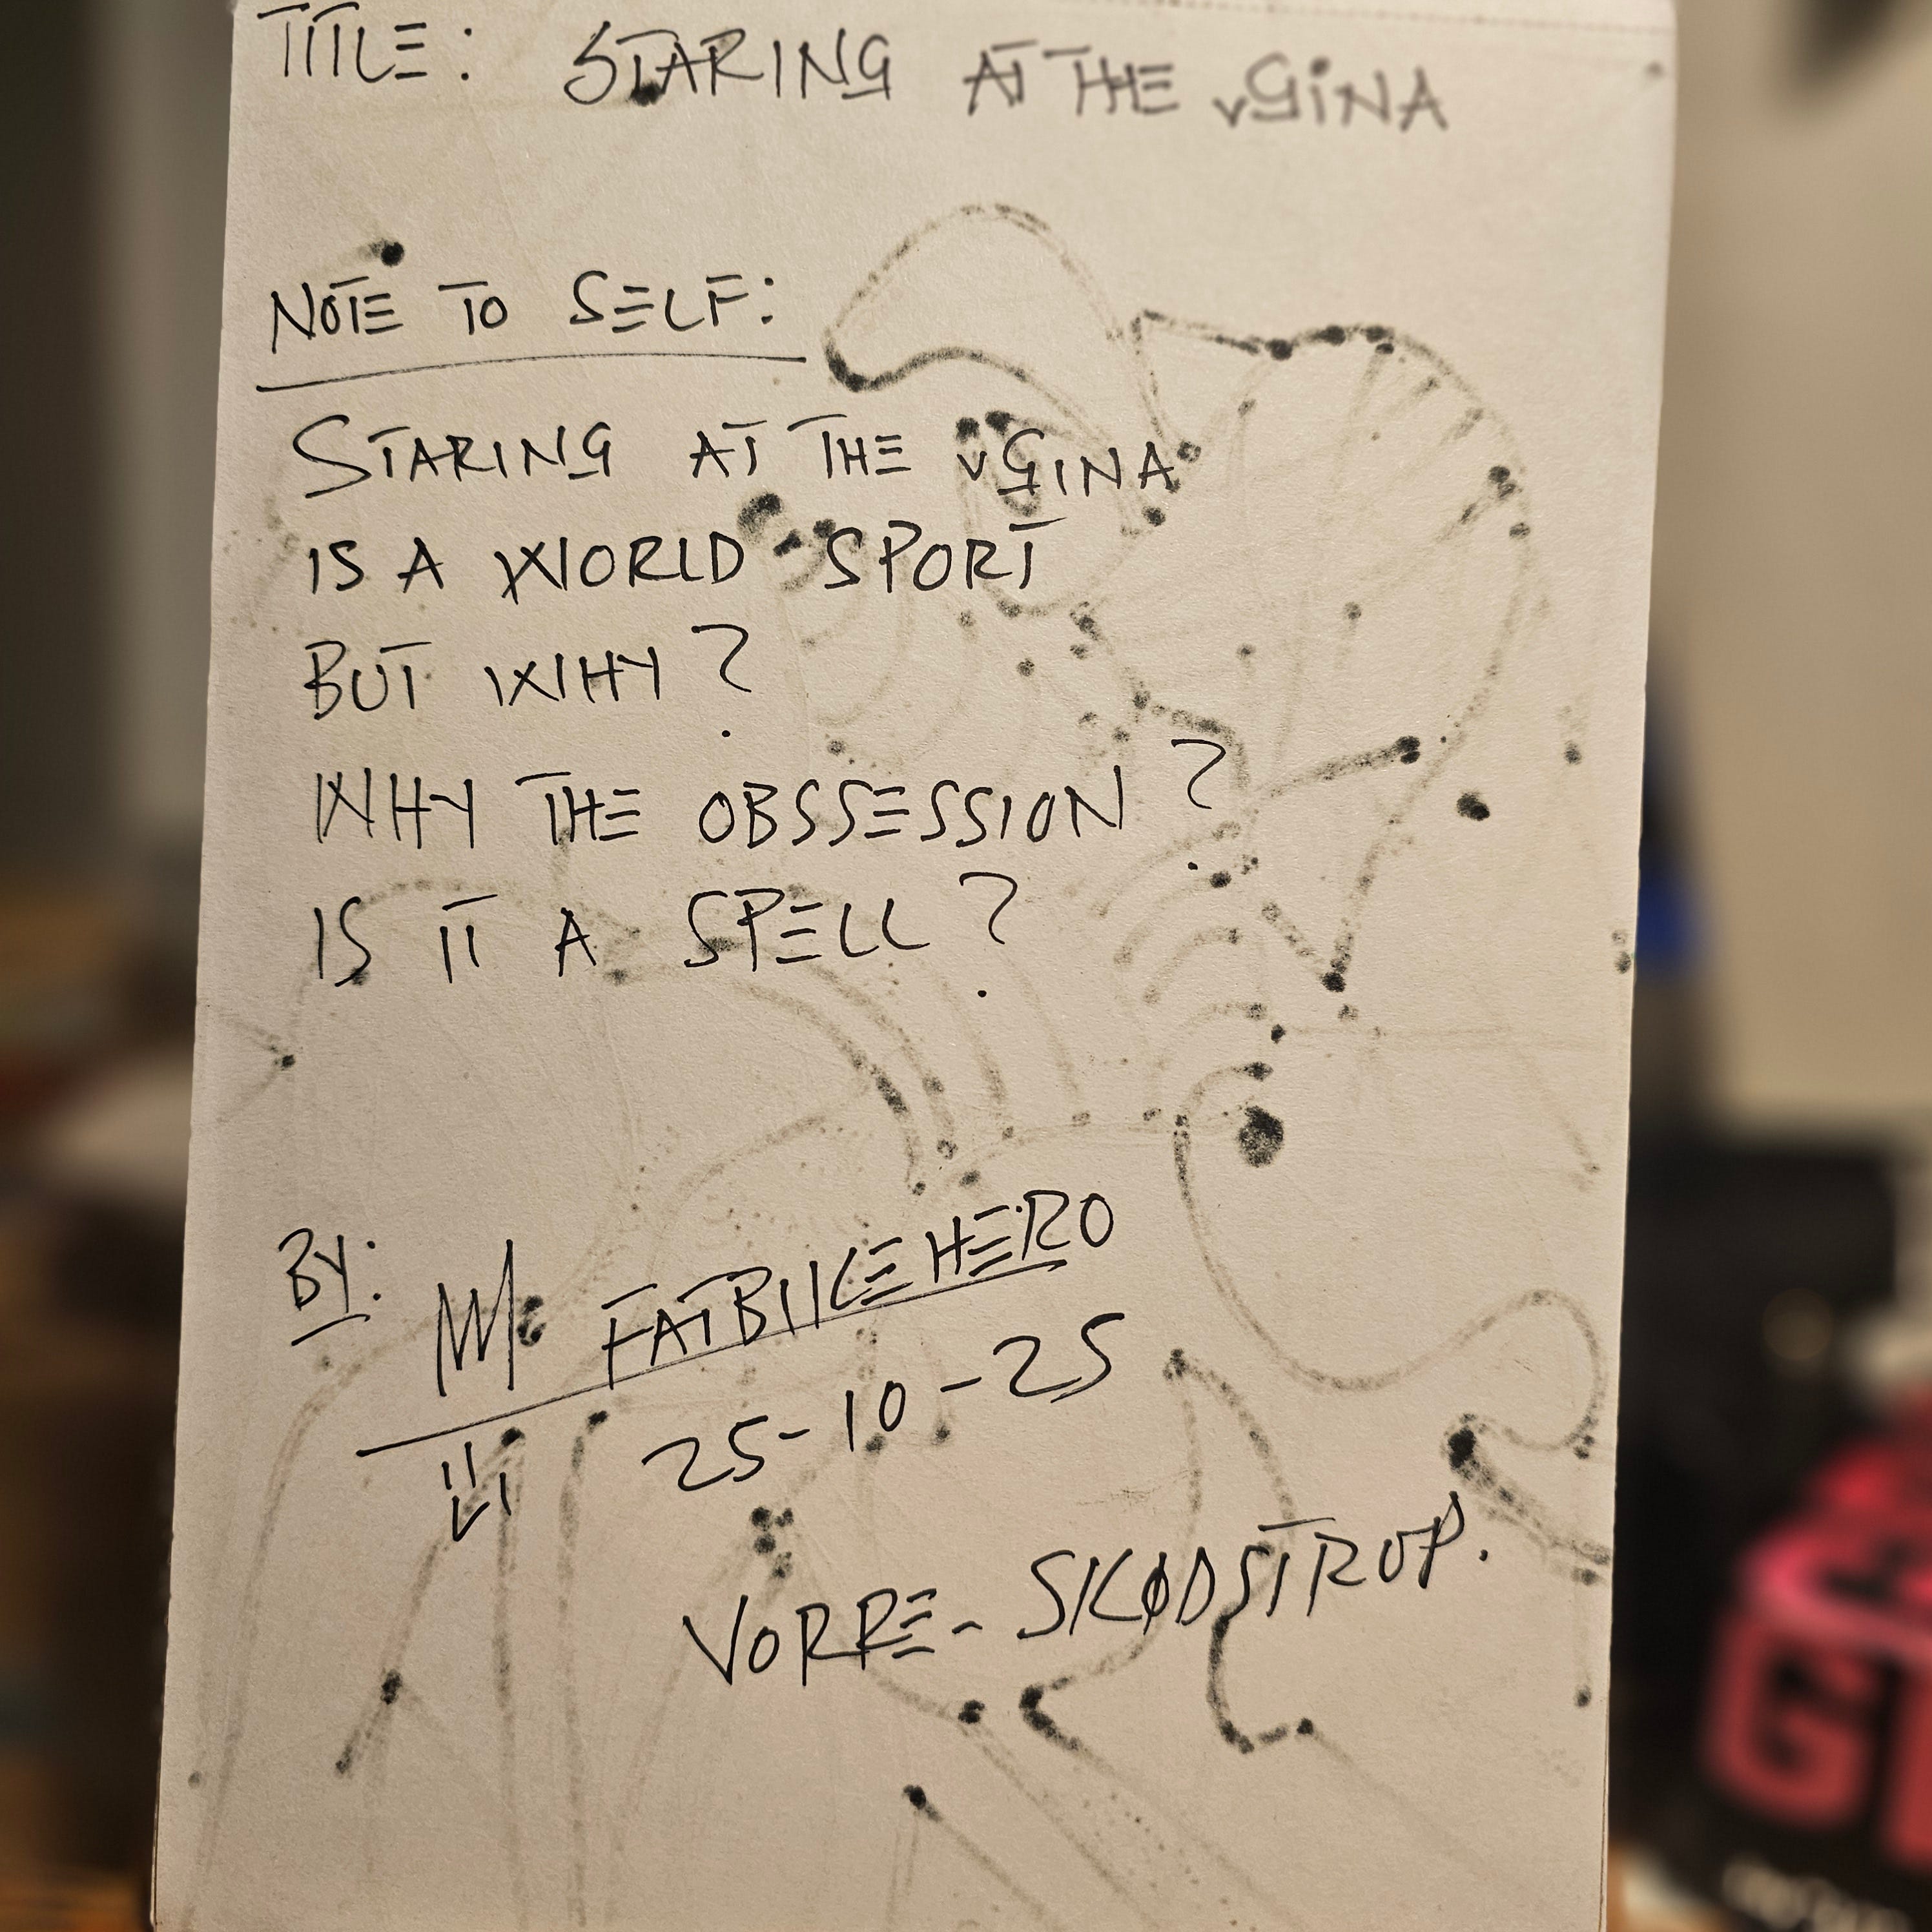 TITLE: STARING AT THE vGiNA
NOTE TO SELF:
STARING AT THE vGINA
IS A WORLD-SPORT
BUT WHY?
WHY THE OBSSESSION?
IS IT A SPELL?
BY: M. FATBIKEHERO
25-10-25
VORRE-SKØDSTRUP.